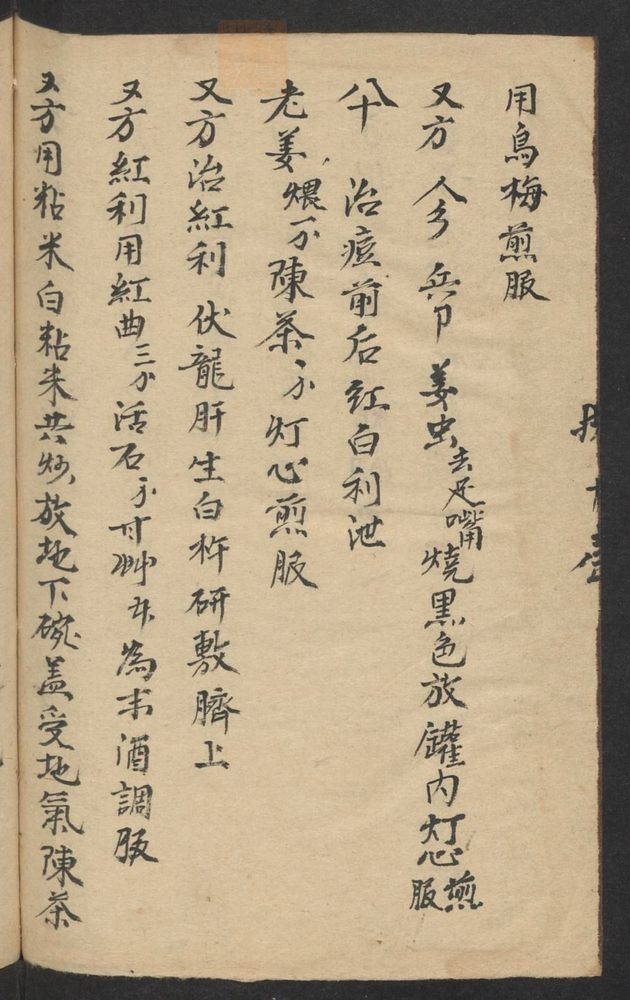 用烏梅煎服
又方 姜虫去足嘴燒黑色放罐内灯心煎服
八十 治痘前后紅白利泄
老姜煨 陳茶 灯心煎服
又方治紅利伏龍肝生白杵研敷臍上
又方紅利用紅曲三 活石 甘艸 為末酒調服
又方用粘米白粘米共炒放地下碗盖受地氣陳茶